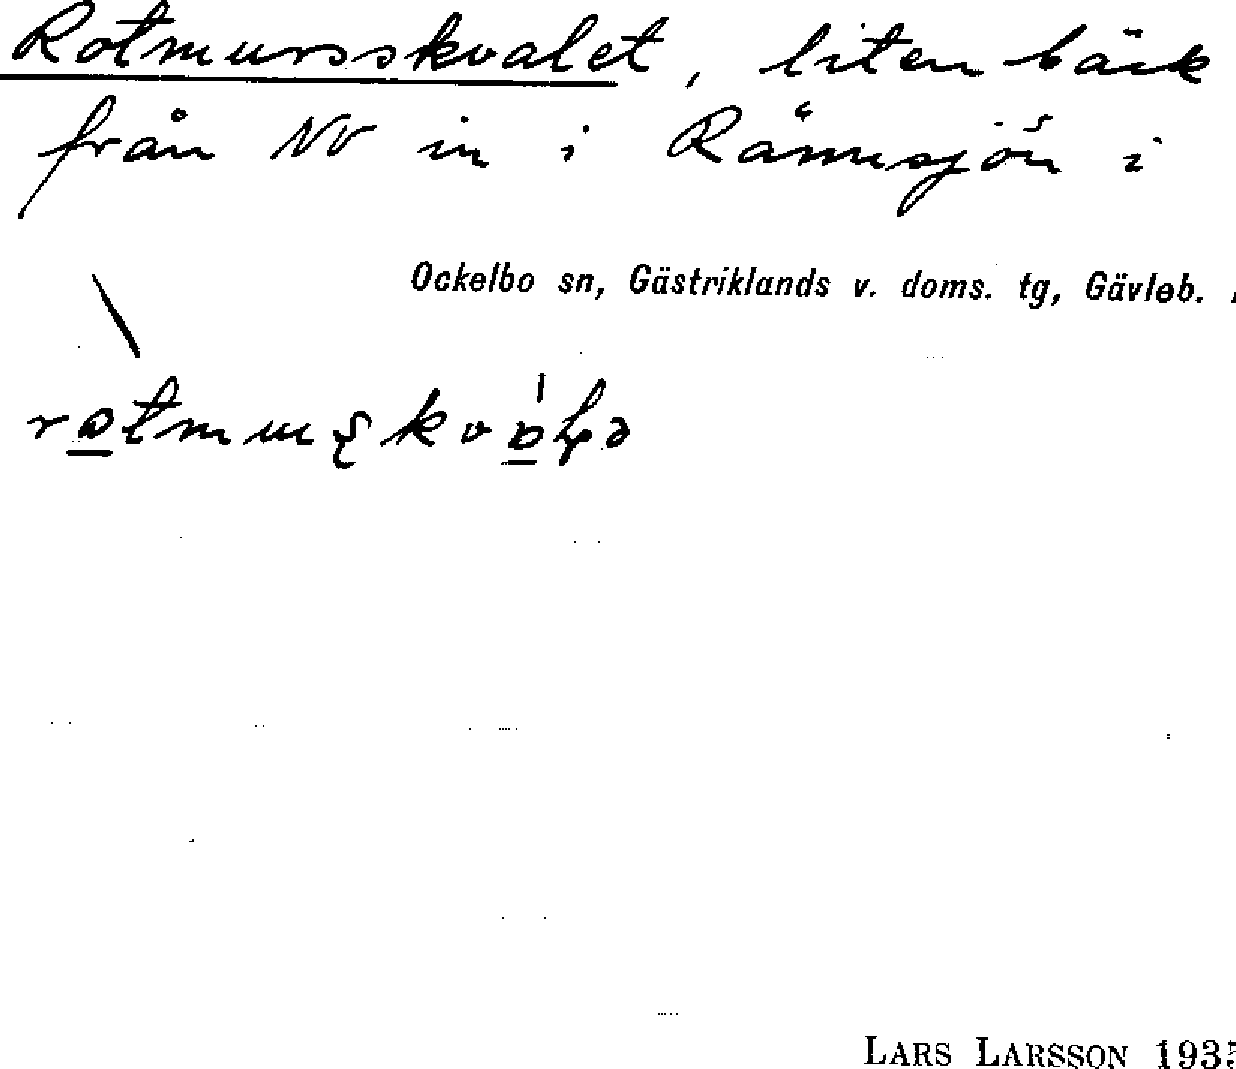 Rotmursskvalet, liten bäck
från NV in i Rännsjön i
Ockelbo sn, Gästriklands v. doms. tg, Gävleb.
LARS LARSSON 193